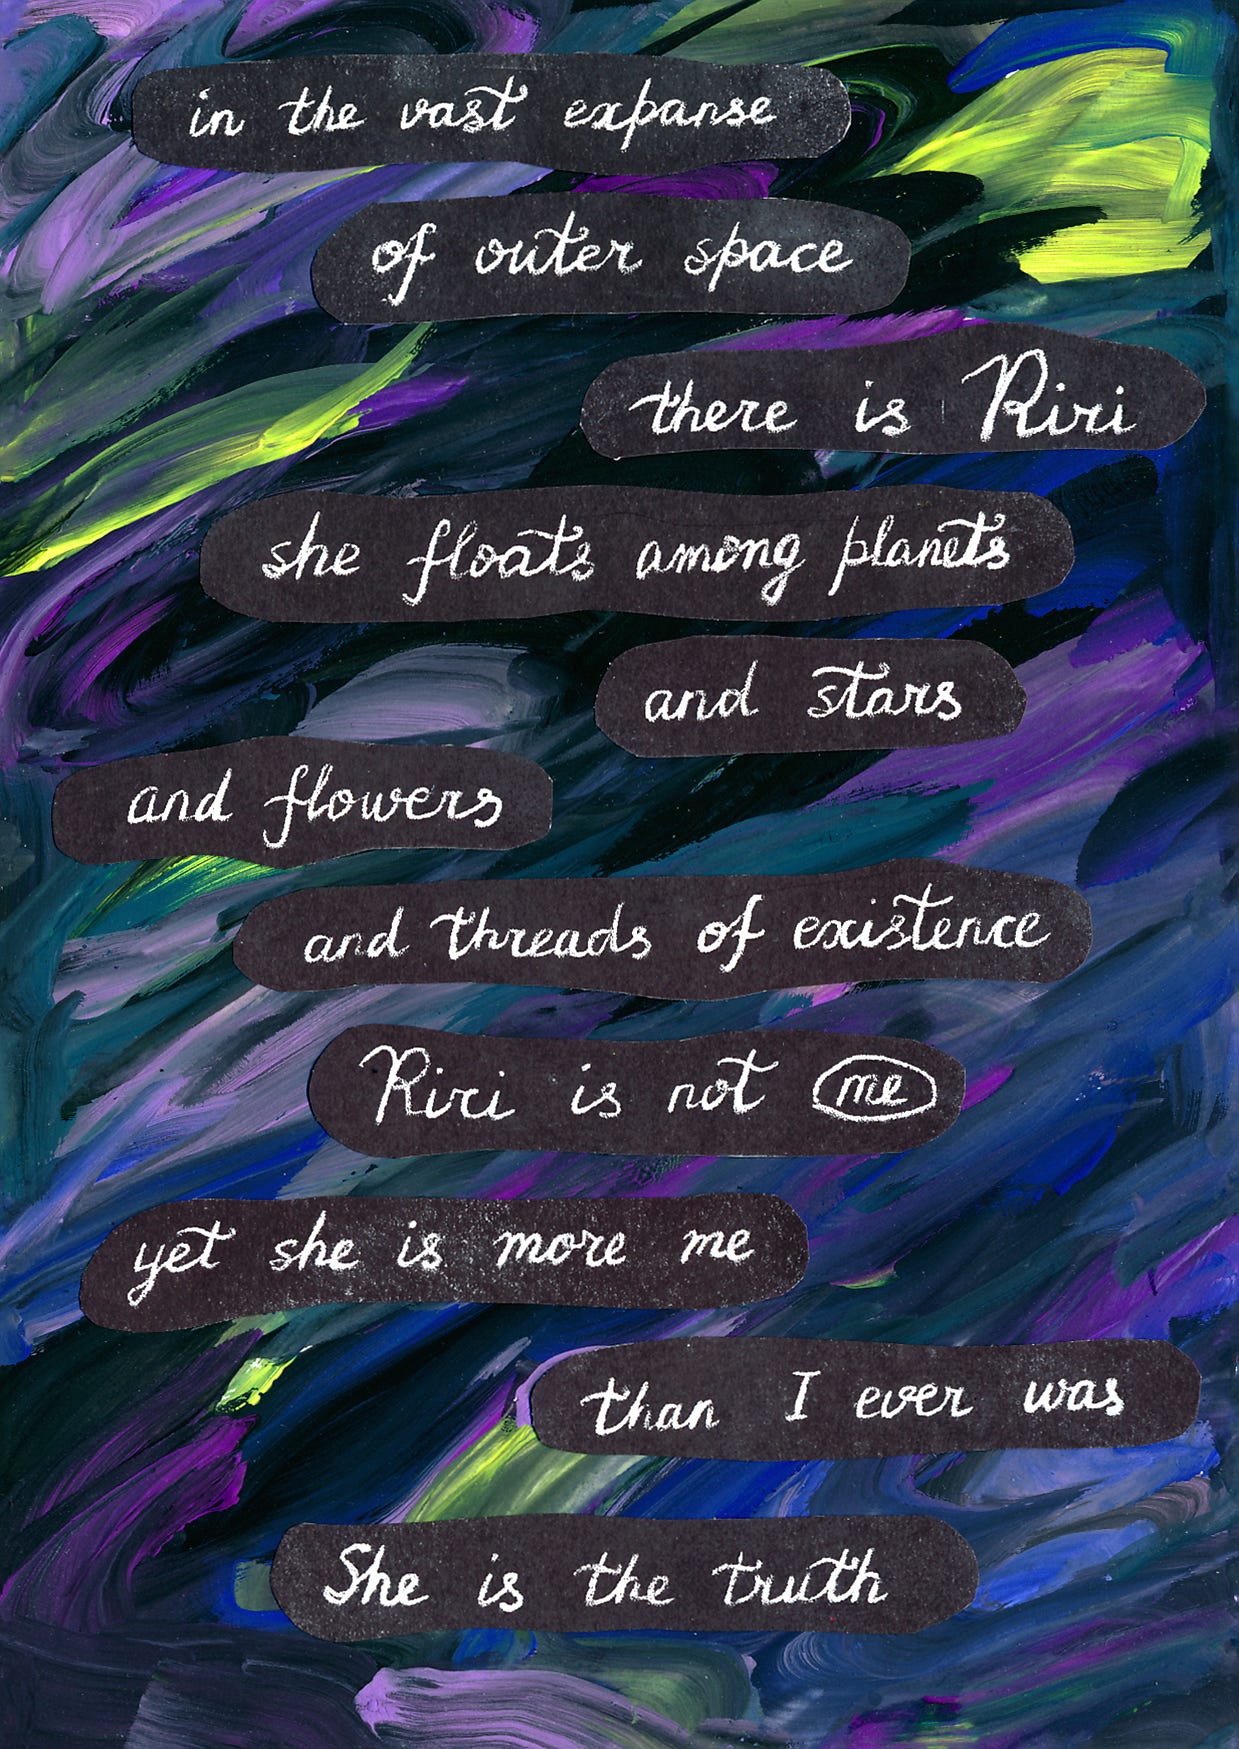 in the vast expanse
of outer space
there is Riri
she floats among planets
and stars
and flowers
and threads of existence
Riri is not me
yet she is more me
than I ever was
She is the truth